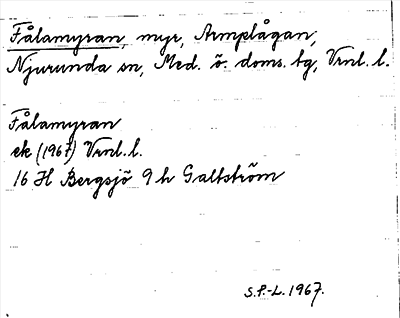 Fålamyran, myr, Armplågan,
Njurunda sn, Med. ö. doms. tg, Vrnl. l.
Fålamyran
ek (1967) Vrnl. l.
16 H Bergsjö 9 h Galtström
S.P.-L. 1967.